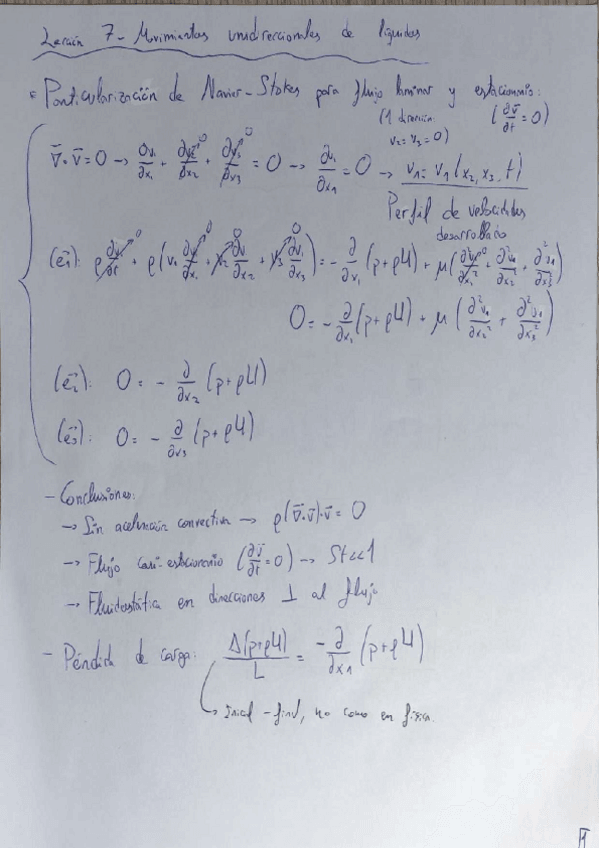 Lección 7- Movimientos unidireccionales de líquidos
* Particularización de Navier-Stokes para flujo laminar y estacionario:
(1 dirección: v₂ = v₃ = 0)
(∂v̄/∂t = 0)
∇̄·v̄ = 0 → ∂v₁/∂x₁ + ∂v₂/∂x₂⁰ + ∂v₃/∂x₃⁰ = 0 → ∂v₁/∂x₁ = 0 → v₁ = v₁(x₂, x₃, t)
Perfil de velocidades
desarrollado
(e₁): ρ ∂v₁/∂t⁰ + ρ(v₁ ∂v₁/∂x₁⁰ + v₂⁰ ∂v₁/∂x₂ + v₃⁰ ∂v₁/∂x₃) = - ∂/∂x₁ (p+ρU) + μ(∂²v₁/∂x₁²⁰ + ∂²v₁/∂x₂² + ∂²v₁/∂x₃²)
0 = - ∂/∂x₁ (p+ρU) + μ (∂²v₁/∂x₂² + ∂²v₁/∂x₃²)
(e₂): 0 = - ∂/∂x₂ (p+ρU)
(e₃): 0 = - ∂/∂x₃ (p+ρU)
- Conclusiones:
→ Sin aceleración convectiva → ρ(∇̄·v̄)·v̄ = 0
→ Flujo casi-estacionario (∂v̄/∂t = 0) → St<<1
→ Fluidostática en direcciones ⊥ al flujo
- Pérdida de carga: Δ(p+ρU)/L = -∂/∂x₁ (p+ρU)
↳ Inicial - final, no como en física.